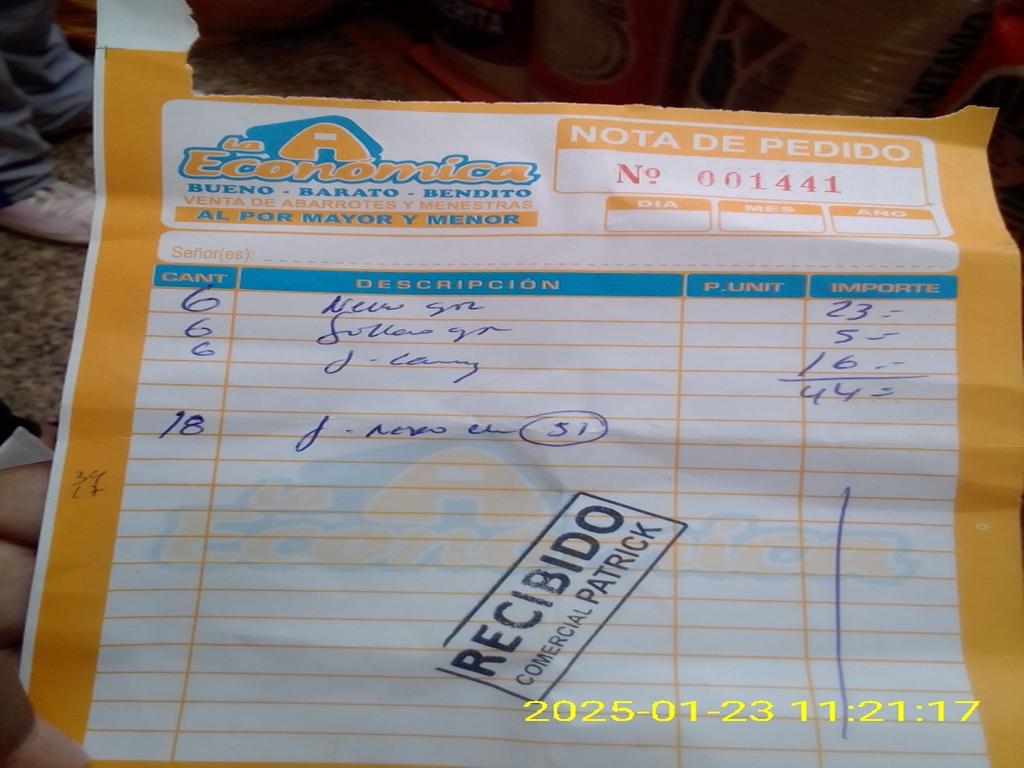 La
Económica
BUENO - BARATO - BENDITO
VENTA DE ABARROTES Y MENESTRAS
AL POR MAYOR Y MENOR
NOTA DE PEDIDO
Nº 001441
DIA MES AÑO
Señor(es):
CANT DESCRIPCIÓN P.UNIT IMPORTE
6 23 -
6 5 -
6 16 -
44 =
18 51
34
17
La
Económica
RECIBIDO
COMERCIAL PATRICK
2025-01-23 11:21:17